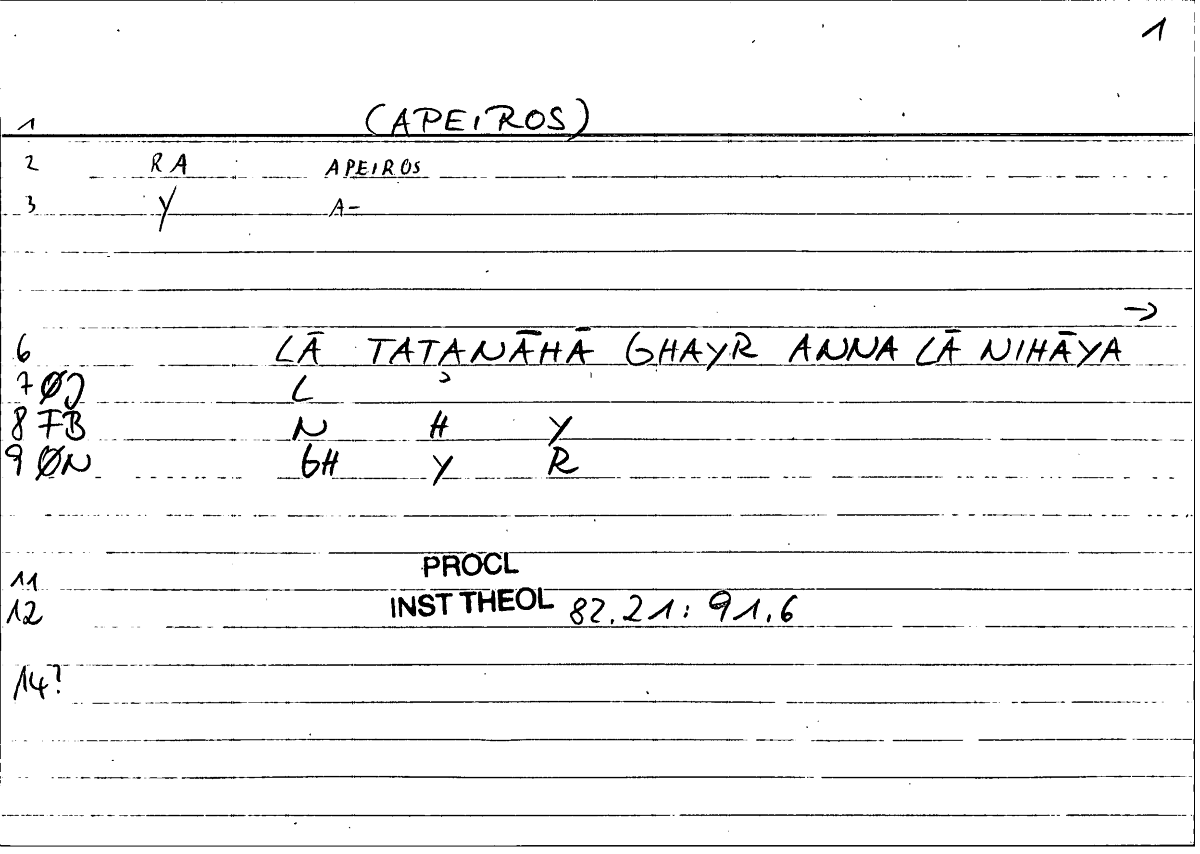 1
1 (APEIROS)
2 RA APEIROS
3 Y A-
→
6 LĀ TATANĀHĀ GHAYR ANNA LĀ NIHĀYA
7 ØJ L ʾ
8 FB N H Y
9 ØN GH Y R
11 PROCL
12 INST THEOL 82.21: 91.6
14?